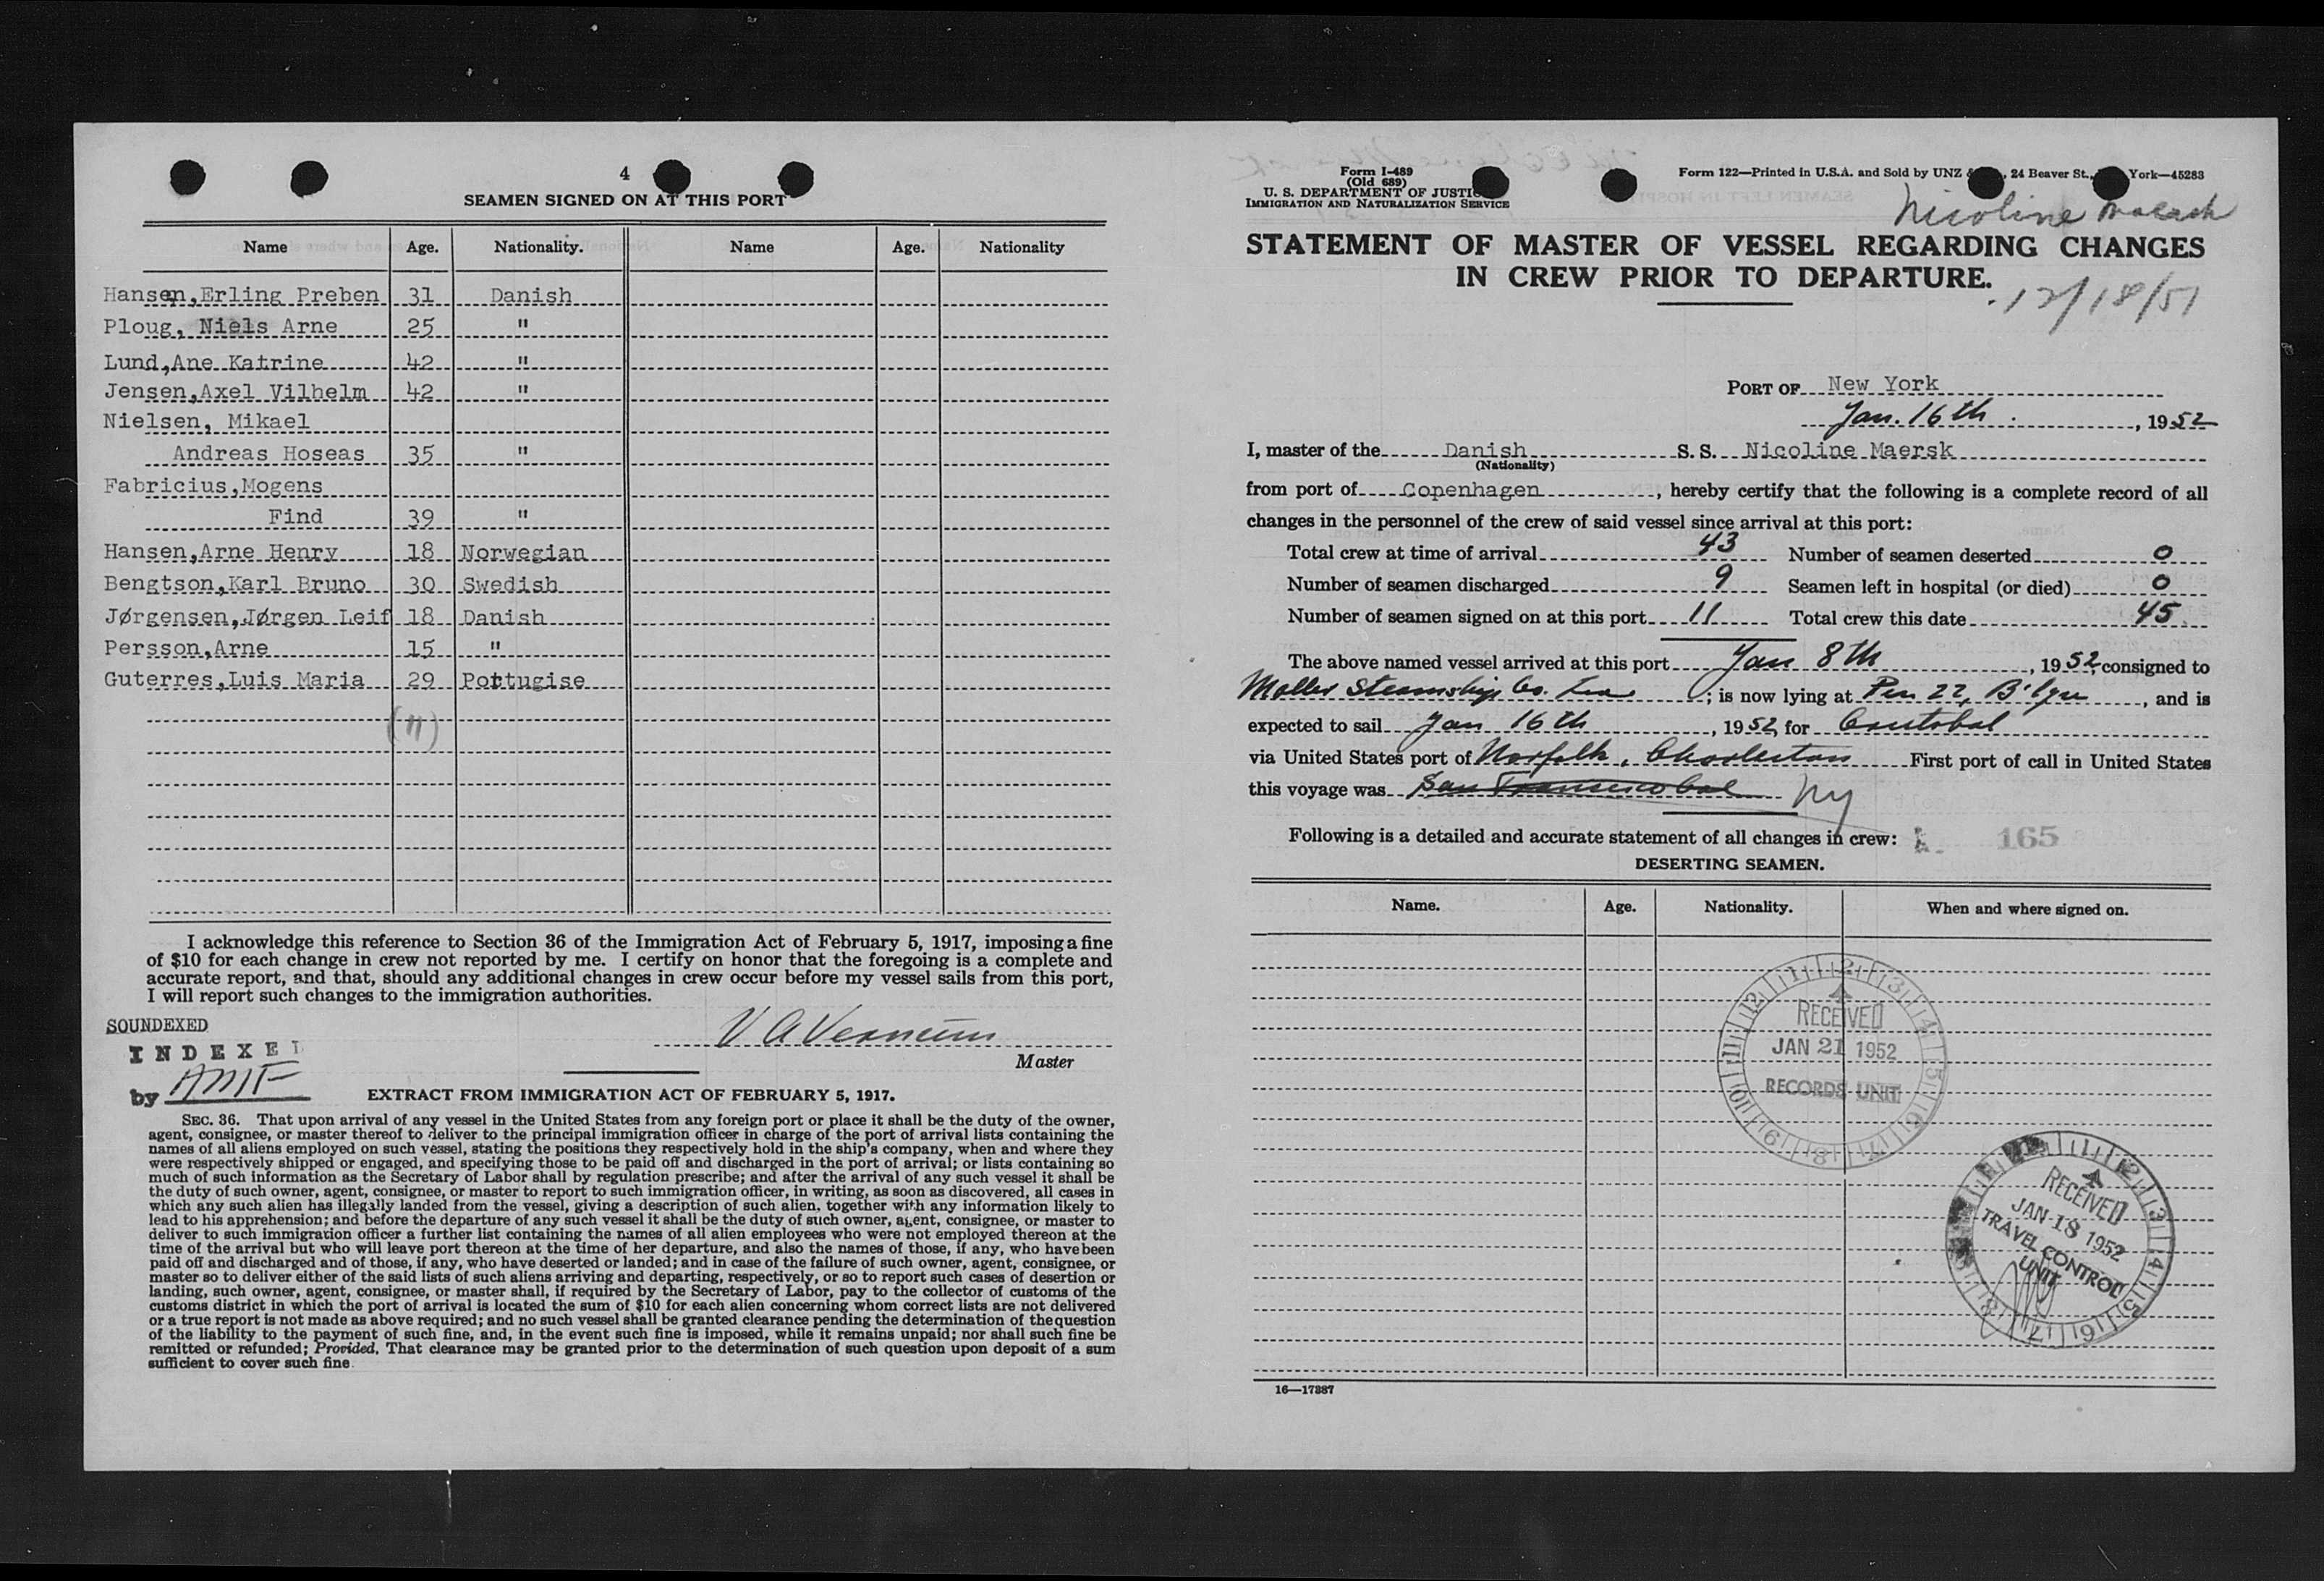 4
SEAMEN SIGNED ON AT THIS PORT
Name Age. Nationality. Name Age. Nationality
Hansen,Erling Preben 31 Danish
Ploug, Niels Arne 25 "
Lund,Ane Katrine 42 "
Jensen,Axel Vilhelm 42 "
Nielsen, Mikael
Andreas Hoseas 35 "
Fabricius,Mogens
Find 39 "
Hansen,Arne Henry 18 Norwegian
Bengtson,Karl Bruno 30 Swedish
Jørgensen,Jørgen Leif 18 Danish
Persson,Arne 15 "
Guterres,Luis Maria 29 Portugise
(11)
I acknowledge this reference to Section 36 of the Immigration Act of February 5, 1917, imposing a fine
of $10 for each change in crew not reported by me. I certify on honor that the foregoing is a complete and
accurate report, and that, should any additional changes in crew occur before my vessel sails from this port,
I will report such changes to the immigration authorities.
SOUNDEXED
INDEXED
by AMF
V A
Master
EXTRACT FROM IMMIGRATION ACT OF FEBRUARY 5, 1917.
SEC. 36. That upon arrival of any vessel in the United States from any foreign port or place it shall be the duty of the owner,
agent, consignee, or master thereof to deliver to the principal immigration officer in charge of the port of arrival lists containing the
names of all aliens employed on such vessel, stating the positions they respectively hold in the ship's company, when and where they
were respectively shipped or engaged, and specifying those to be paid off and discharged in the port of arrival; or lists containing so
much of such information as the Secretary of Labor shall by regulation prescribe; and after the arrival of any such vessel it shall be
the duty of such owner, agent, consignee, or master to report to such immigration officer, in writing, as soon as discovered, all cases in
which any such alien has illegally landed from the vessel, giving a description of such alien, together with any information likely to
lead to his apprehension; and before the departure of any such vessel it shall be the duty of such owner, agent, consignee, or master to
deliver to such immigration officer a further list containing the names of all alien employees who were not employed thereon at the
time of the arrival but who will leave port thereon at the time of her departure, and also the names of those, if any, who have been
paid off and discharged and of those, if any, who have deserted or landed; and in case of the failure of such owner, agent, consignee, or
master so to deliver either of the said lists of such aliens arriving and departing, respectively, or so to report such cases of desertion or
landing, such owner, agent, consignee, or master shall, if required by the Secretary of Labor, pay to the collector of customs of the
customs district in which the port of arrival is located the sum of $10 for each alien concerning whom correct lists are not delivered
or a true report is not made as above required; and no such vessel shall be granted clearance pending the determination of the question
of the liability to the payment of such fine, and, in the event such fine is imposed, while it remains unpaid; nor shall such fine be
remitted or refunded; Provided, That clearance may be granted prior to the determination of such question upon deposit of a sum
sufficient to cover such fine.
Form I-489
(Old 689)
U. S. DEPARTMENT OF JUSTICE
IMMIGRATION AND NATURALIZATION SERVICE
Form 122—Printed in U.S.A. and Sold by UNZ & , 24 Beaver St., York—45283
Nicoline Maersk
STATEMENT OF MASTER OF VESSEL REGARDING CHANGES
IN CREW PRIOR TO DEPARTURE.
12/18/51
PORT OF New York
Jan. 16th , 1952
I, master of the Danish S. S. Nicoline Maersk
(Nationality)
from port of Copenhagen , hereby certify that the following is a complete record of all
changes in the personnel of the crew of said vessel since arrival at this port:
Total crew at time of arrival 43 Number of seamen deserted 0
Number of seamen discharged 9 Seamen left in hospital (or died) 0
Number of seamen signed on at this port 11 Total crew this date 45
The above named vessel arrived at this port Jan 8th , 1952, consigned to
Moller Steamship Co. Inc ; is now lying at Pier 22, B'lyn , and is
expected to sail Jan 16th , 1952, for Cristobal
via United States port of Norfolk, Charleston First port of call in United States
this voyage was San Francisco Cal NY
Following is a detailed and accurate statement of all changes in crew: 165
DESERTING SEAMEN.
Name. Age. Nationality. When and where signed on.
RECEIVED
JAN 21 1952
RECORDS UNIT
RECEIVED
JAN 18 1952
TRAVEL CONTROL
UNIT
16—17387